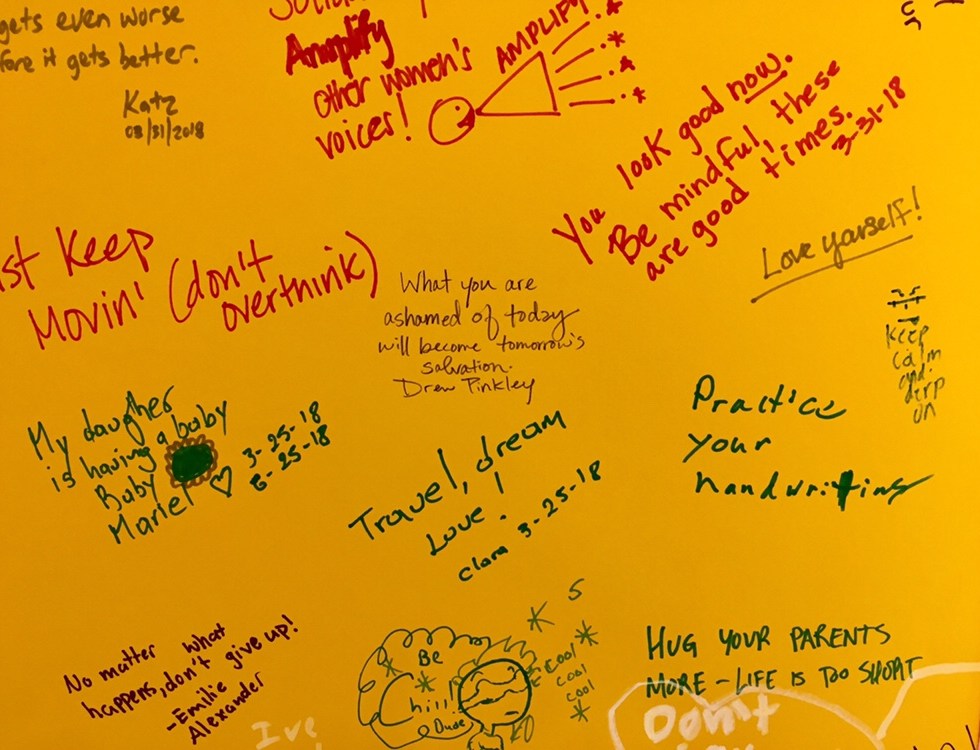 gets even worse
fore it gets better.
Katz
03/31/2018
Amplify
other women's
voices!
AMPLIFY
You look good now.
Be mindful, these
are good times.
3-31-18
Love yourself!
st Keep
Movin' (don't
overthink)
What you are
ashamed of today
will become tomorrow's
salvation.
Drew Pinkley
keep
calm
and
derp
on
My daugher
is having a baby
Baby
Mariel ♡
3-25-18
Travel, dream
Love!
clara 3-25-18
Practice
your
handwriting
No matter what
happens, don't give up!
-Emilie
Alexander
Be
Chill!
Dude
Cool
cool
cool
HUG YOUR PARENTS
MORE - LIFE IS TOO SHORT
I've
Don't